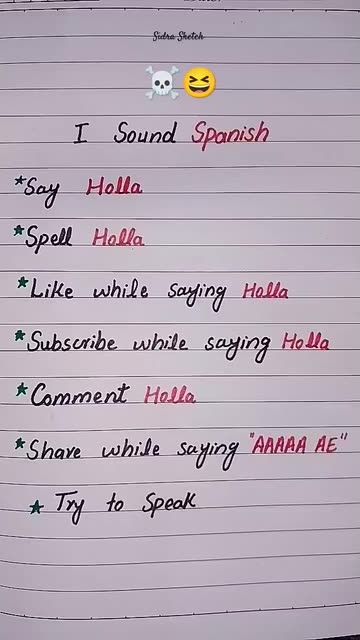 Sidra Sketch
☠️😆
I Sound Spanish
*Say Holla
*Spell Holla
*Like while saying Holla
*Subscribe while saying Holla
*Comment Holla
*Share while saying "AAAAA AE"
★ Try to Speak